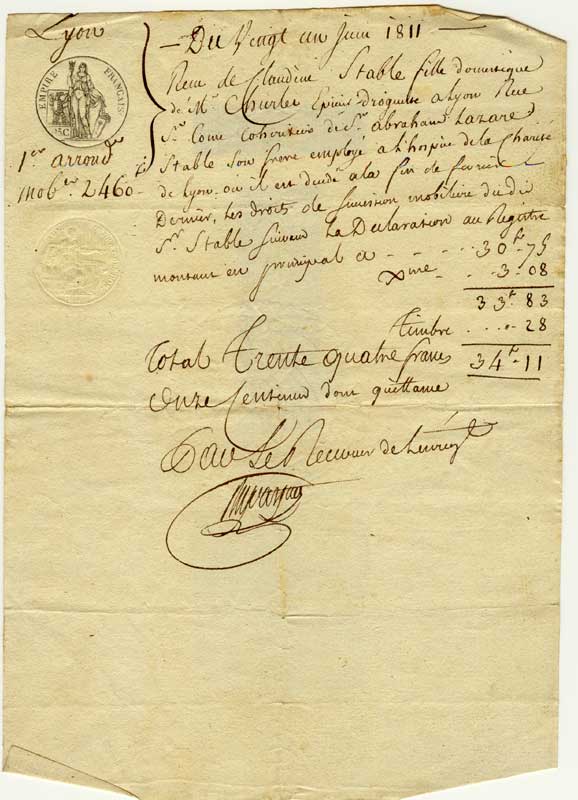 Lyon
EMPIRE FRANÇAIS
25C
1er arrondt
mober 2460
— Du Vingt un Juin 1811 —
Recu de Claudine Stable fille domestique
de Mr Charlet Epicier droguiste a Lyon Rue
St Come cohoritiere de Sr abraham Lazare
Stable son frere employé a l'hospice de la Charité
de Lyon ou il est décédé a la fin de fevrier
Dernier, Les droits de Succession mobiliaire du dit
Sr Stable suivant La Declaration au Registre
montant en principal a - - - - 30f-75
Xme - - 3-08
33f 83
Timbre ....- 28
Total Trente quatre francs 34f-11
Onze Centimes dont quittance
Le Receveur de Lenregt